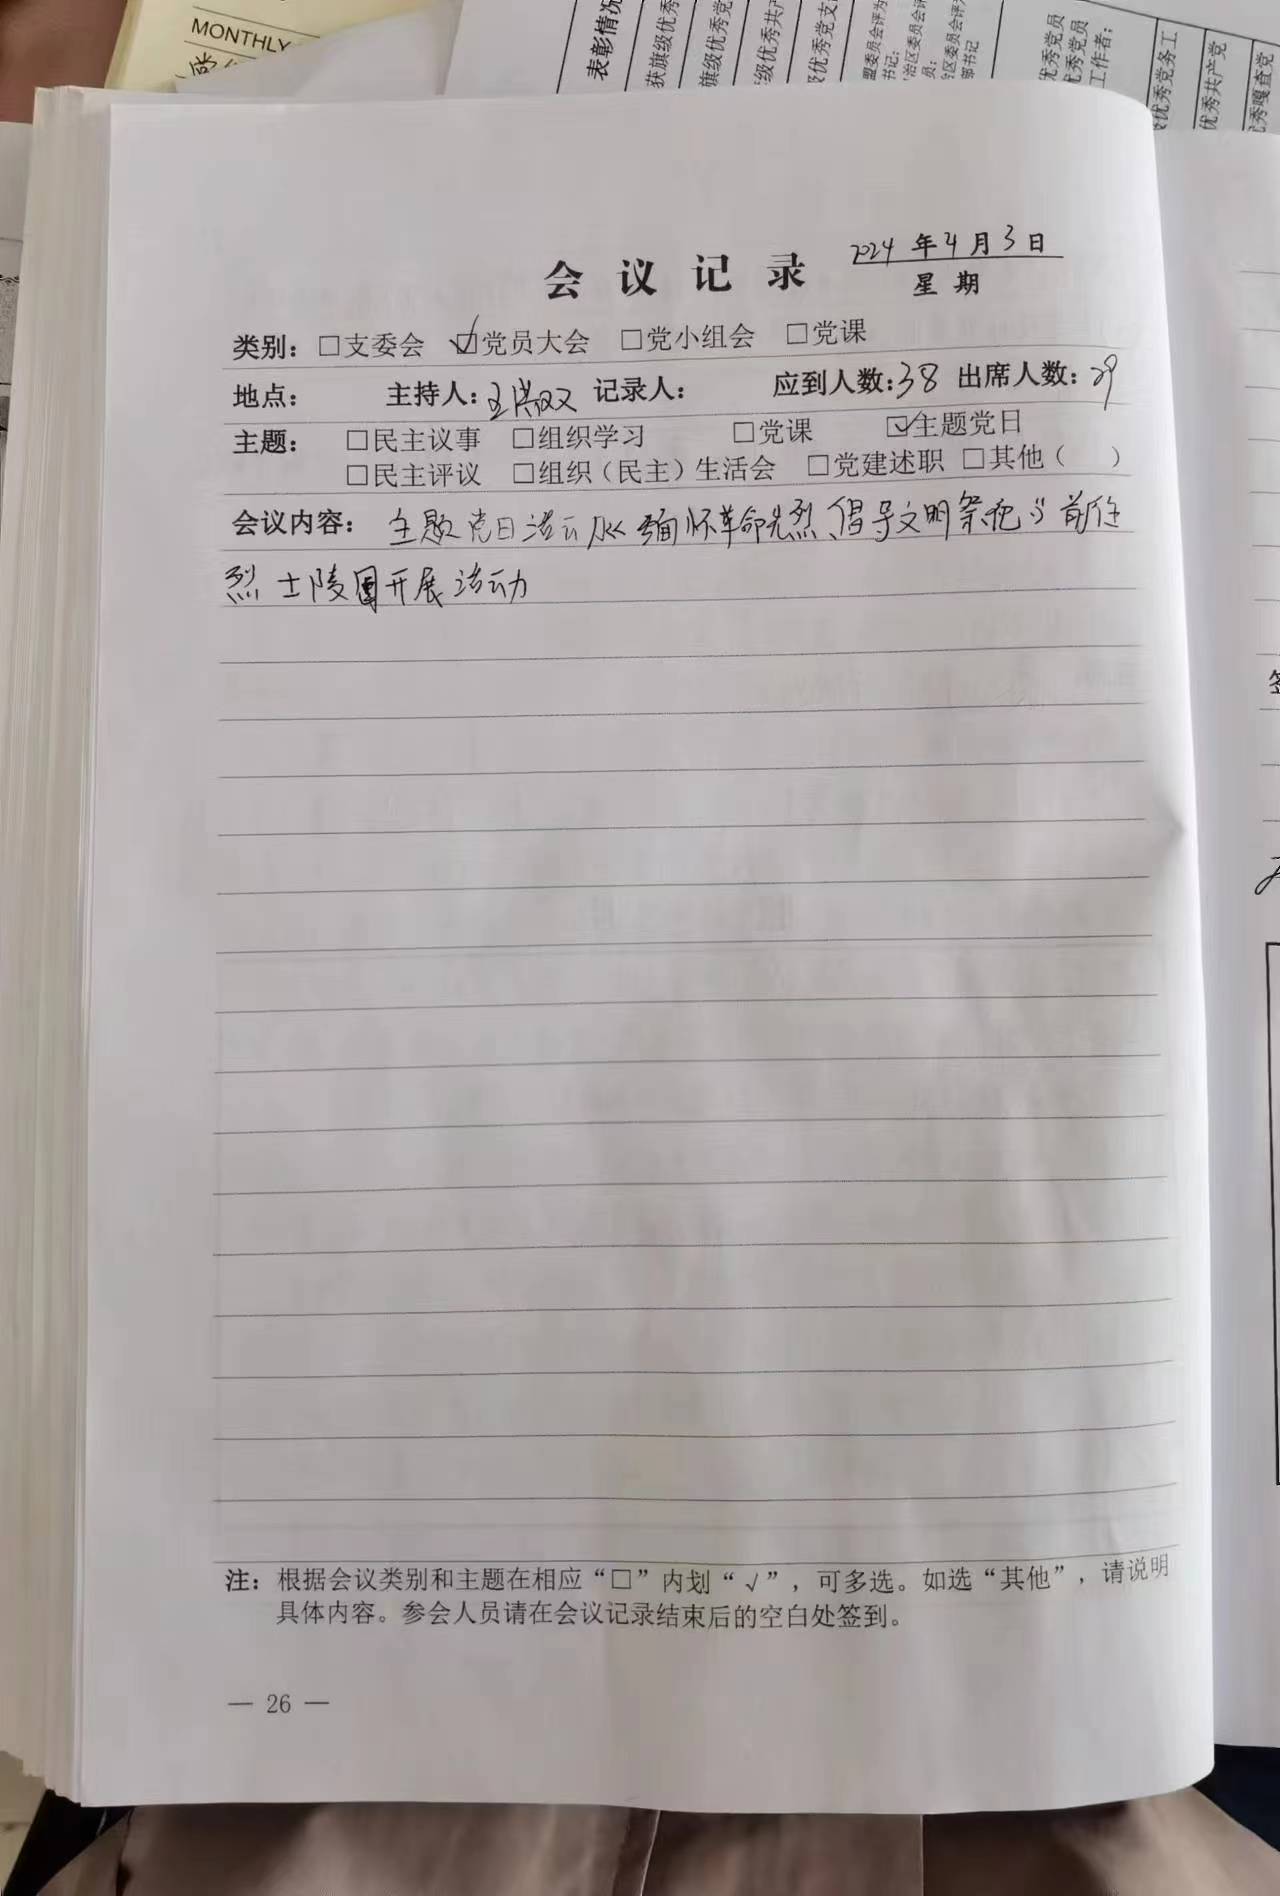 MONTHLY
表彰情况
获旗级优秀
旗级优秀党
级优秀共产
级优秀党支
盟委员会评为
书记;
治区委员会评
员;
区委员会评为
部书记
优秀党员
优秀党员
工作者;
级优秀党务工
优秀共产党
优秀嘎查党
会议记录
2024年4月3日
星期
类别: □支委会 ☑党员大会 □党小组会 □党课
地点: 主持人: 王 记录人: 应到人数:38 出席人数: 29
主题: □民主议事 □组织学习 □党课 ☑主题党日
□民主评议 □组织(民主)生活会 □党建述职 □其他( )
会议内容: 主题党日活动以“缅怀革命先烈、倡导文明祭祀”前往
烈士陵园开展活动
注: 根据会议类别和主题在相应“□”内划“√”,可多选。如选“其他”,请说明
具体内容。参会人员请在会议记录结束后的空白处签到。
— 26 —